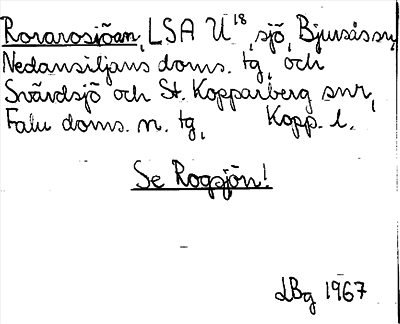 Rorarosjöan, LSA U 18, sjö, Bjursås sn,
Nedansiljans doms. tg, och
Svärdsjö och St. Kopparberg snr,
Falu doms. n. tg,   Kopp. l.
Se Rogsjön!
LBg 1967